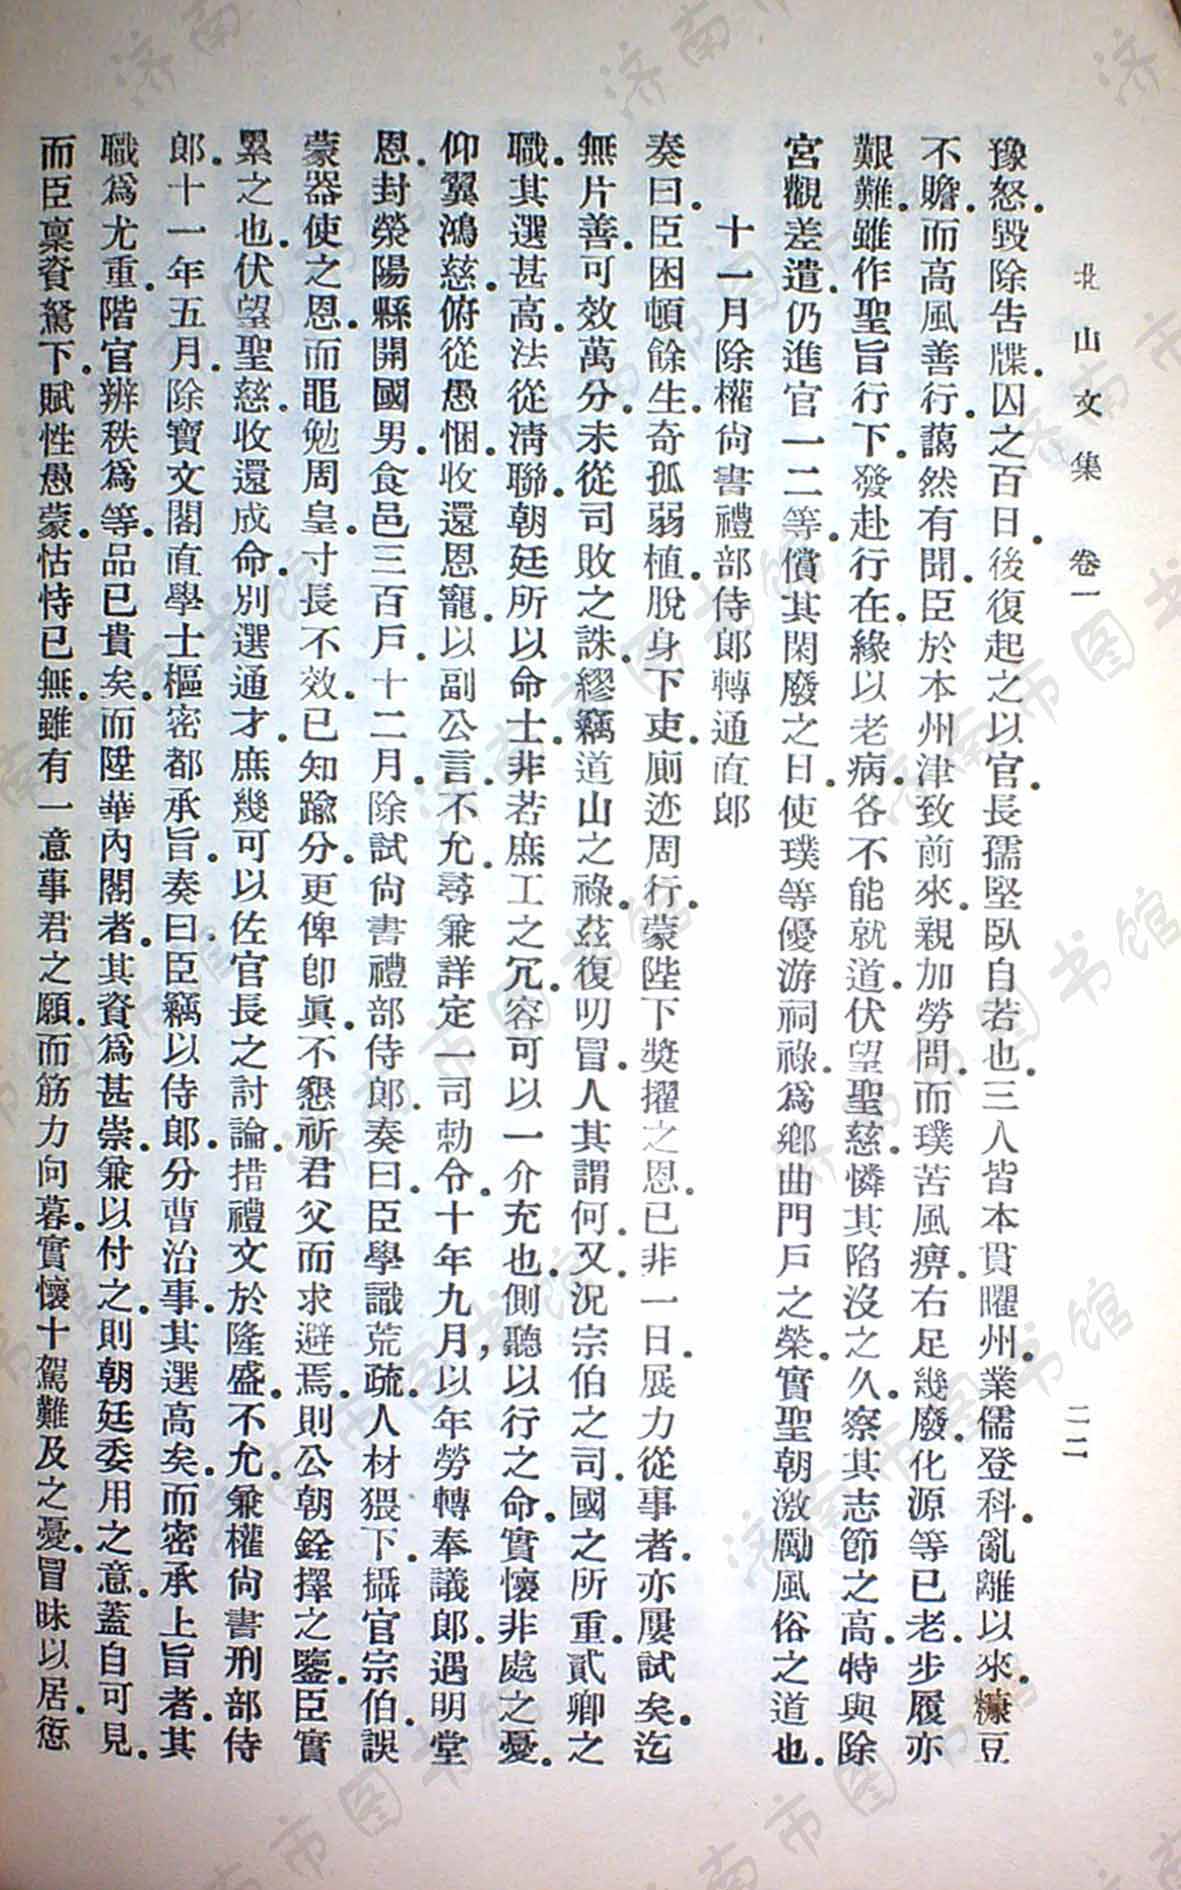 北山文集 卷一 二二
豫怒.毀除告牒.囚之百日.後復起之以官.長孺堅臥自若也.三人皆本貫曜州.業儒登科.亂離以來.糠豆
不贍.而高風善行.藹然有聞.臣於本州津致前來.親加勞問.而璞苦風痹.右足幾廢.化源等已老.步履亦
艱難.雖作聖旨行下.發赴行在.緣以老病.各不能就道.伏望聖慈.憐其陷沒之久.察其志節之高.特與除
宮觀差遣.仍進官一二等.償其閑廢之日.使璞等優游祠祿.爲鄉曲門戶之榮.實聖朝激勵風俗之道也.
十一月除權尙書禮部侍郞轉通直郞
奏曰.臣困頓餘生.奇孤弱植.脫身下吏.廁迹周行.蒙陛下奬擢之恩.已非一日.展力從事者.亦屢試矣.迄
無片善.可效萬分.未從司敗之誅.繆竊道山之祿.茲復叨冒.人其謂何.又況宗伯之司.國之所重.貳卿之
職.其選甚高.法從淸聯.朝廷所以命士.非若庶工之冗.容可以一介充也.側聽以行之命.實懷非處之憂.
仰翼鴻慈.俯從愚悃.收還恩寵.以副公言.不允.尋兼詳定一司勅令.十年九月,以年勞轉奉議郞.遇明堂
恩.封榮陽縣開國男.食邑三百戶.十二月.除試尙書禮部侍郞.奏曰.臣學識荒疏.人材猥下.攝官宗伯.誤
蒙器使之恩.而黽勉周皇.寸長不效.已知踰分.更俾卽眞.不懇祈君父而求避焉.則公朝銓擇之鑒.臣實
累之也.伏望聖慈.收還成命.別選通才.庶幾可以佐官長之討論.措禮文於隆盛.不允.兼權尙書刑部侍
郞.十一年五月.除寶文閣直學士樞密都承旨.奏曰.臣竊以侍郞.分曹治事.其選高矣.而密承上旨者.其
職爲尤重.階官辨秩爲等.品已貴矣.而陞華內閣者.其資爲甚崇.兼以付之.則朝廷委用之意.蓋自可見.
而臣稟資駑下.賦性愚蒙.怙恃已無.雖有一意事君之願.而筋力向暮.實懷十駕難及之憂.冒昧以居.愆